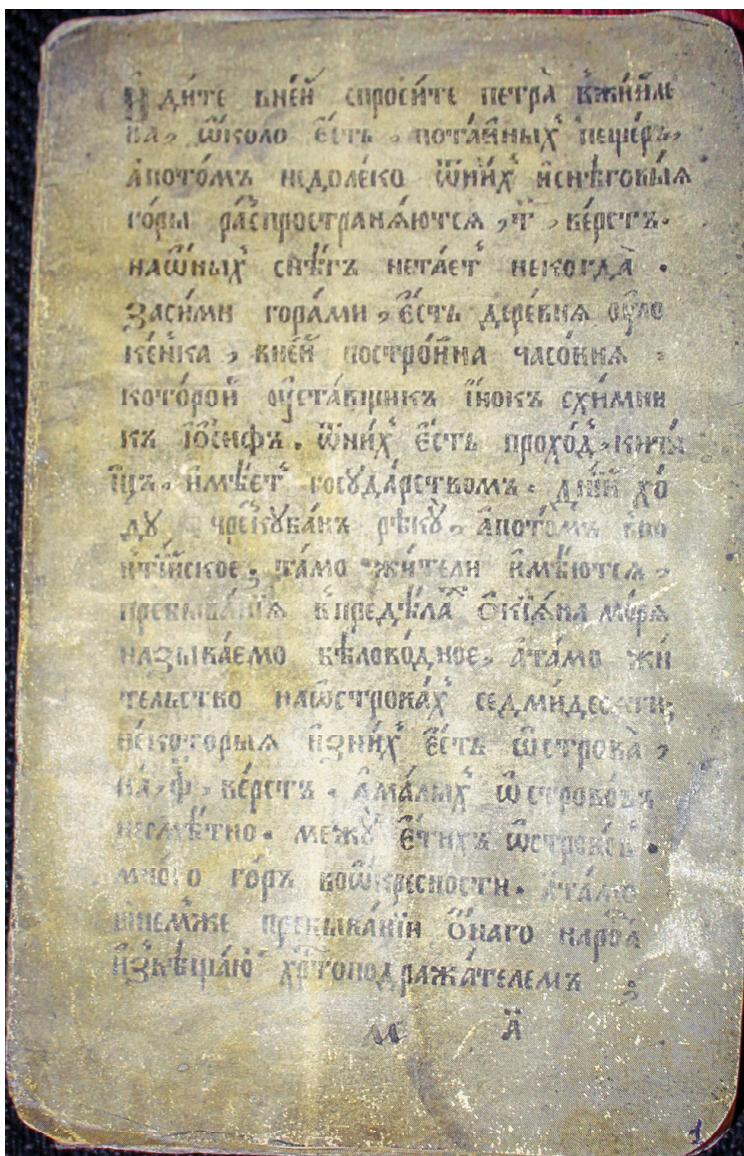 И дите внѣй спроси́те петра̀ кжи́и́ле
ва, ѡ҆́коло е҆́сть, пота́йныхъ пеще́ръ,
а҆пото́мъ недоле́ко ѿни́хъ и҆снѣ́говыя
го́ры ра́спространѧ́ются, т҃, ве́рстъ.
наѡ҆́ныхъ снѣ́гъ нета́етъ некогда̀.
заси́ми гора́ми, е҆́сть дере́вня оу҆́ло
ме́нка, вне́й постро́йна часо́вня,
кото́рой оу҆ста́вщикъ і҆́нокъ схи́мни
къ і҆ѡ́сифъ. ѿни́хъ е҆́сть прохо́д, кита
йцъ. и҆мѣ́етъ госуда́рствомъ. дні́й хо́
ду, чрескꙋба́нъ рѣ́кꙋ, а҆пото́мъ
тамо жи́тели и҆мѣ́ются,
пребыва́нїя впредѣ́лахъ ѻ҆кїѧ́на мо́ря
называ́емо бѣлово́дное, а҆та́мо жи́
тельство наѡ҆строва́хъ седми́десяти,
не́которыя и҆зни́хъ е҆́сть ѡ҆строва̀,
на, ф҃, ве́рстъ. а҆ма́лыхъ ѡ҆строво́въ
несмѣ́тно. межꙋ̀ е҆́тихъ ѡ҆строво́въ.
мно́го го́ръ воѡ҆кресности. а҆та́мо
ѻ҆́наго наро́да
и҆звѣща́ю хр҇топодража́телемъ
м а҃
1